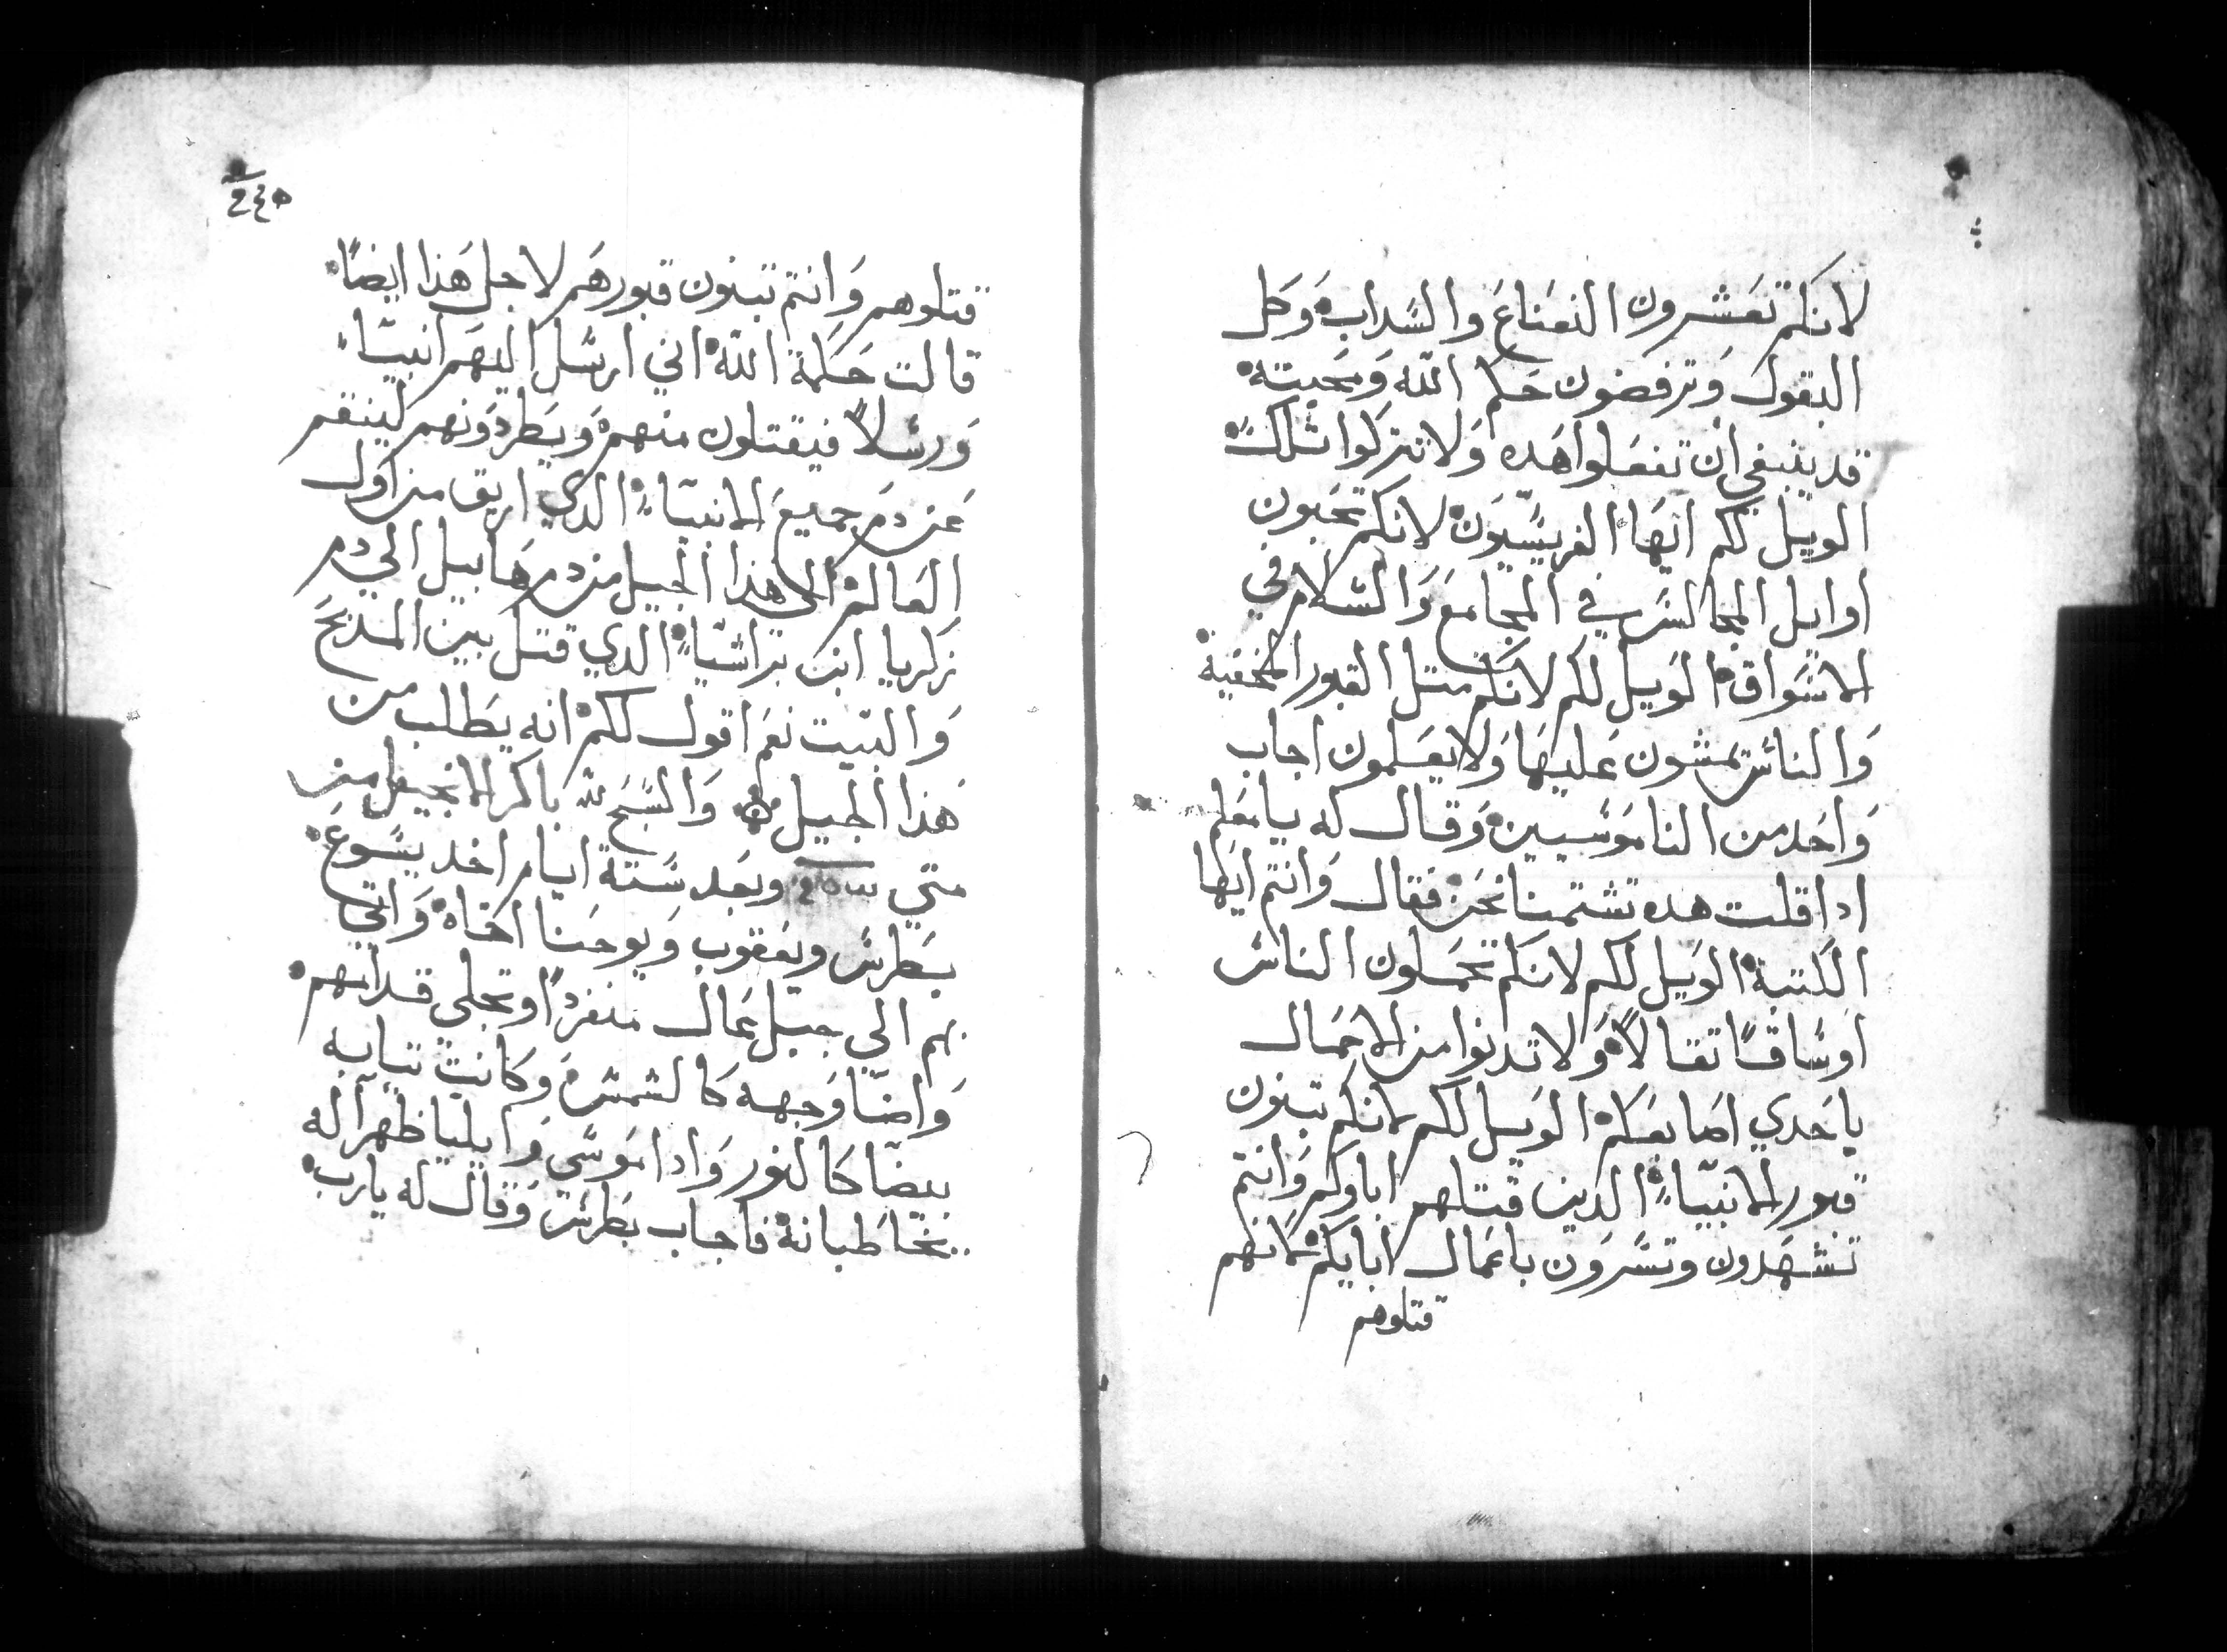 لانكم تعَشرون النعَناعَ والسَداب وَكل
البقول وَترفضون حَكم الله وَمحَبته
قد ينبغي ان تفعَلوا هَده وَلا تتركوا تلك
الويل لكم ايهَا الفريسَيون لانكم تحَبون
اوايل المجالسَ في المجامعَ وَالسَلام في
الاسَواق الوَيل لكم لانكم متل القبور المخفية
وَالناسَ يمشون عَليهَا وَلا يعَلمون اجاب
وَاحَد من الناموَسَيين وَقال له يا معَلم
ادا قلت هده تشتمنا نحَن فقال وَانتم ايهَا
الكتبة الوَيل لكم لانكم تحَملون الناسَ
اوسَاقًا تقالاً وَلا تدنوا من الاحَمال
باحَدي اصَابعَكم الوَيل لكم لانكم تبنون
قبور الانبيَاء الدين قتلهم اباوكم وَانتم
تشهَدون وتسَرَون باعَمال ابايكم لانهم
قتلوهم
٢٤٥
قتلوهم وَانتم تبنون قبورهَم لاجل هَذا ايضًا
قالت حَكمة الله اني ارسَل اليهَم انبيَاء
وَرسَلاً فيقتلون منهم وَيَطردوَنهم لينتقم
عَن دمَ جميعَ الانبيَاء الدي اريق من اول
العَالم الى هَذا الجيل من دم هَابيل الي دم
زكريا ابن براشيَاء الدي قتل بين المدبحَ
وَالبيَت نعَم اقول لكم انه يَطلب من
هَذا الجيل وَالسَبحَ لله باكر الانجيل من
متي وبعَد سَتة ايام اخد يسَوعَ
بَطرسَ ويعَقوب وَيوحَنا اخَاه وَاتي
بهم الي جبَل عَال منفردًا وتجلي قدامهم
وَاضَا وَجهه كَالشمسَ وَكَانت تيابه
بيضَا كَالنور وَادا موَسَي وَايليَا ظهرا له
يخَاطبانه فاجاب بَطرسَ وَقال له يارب